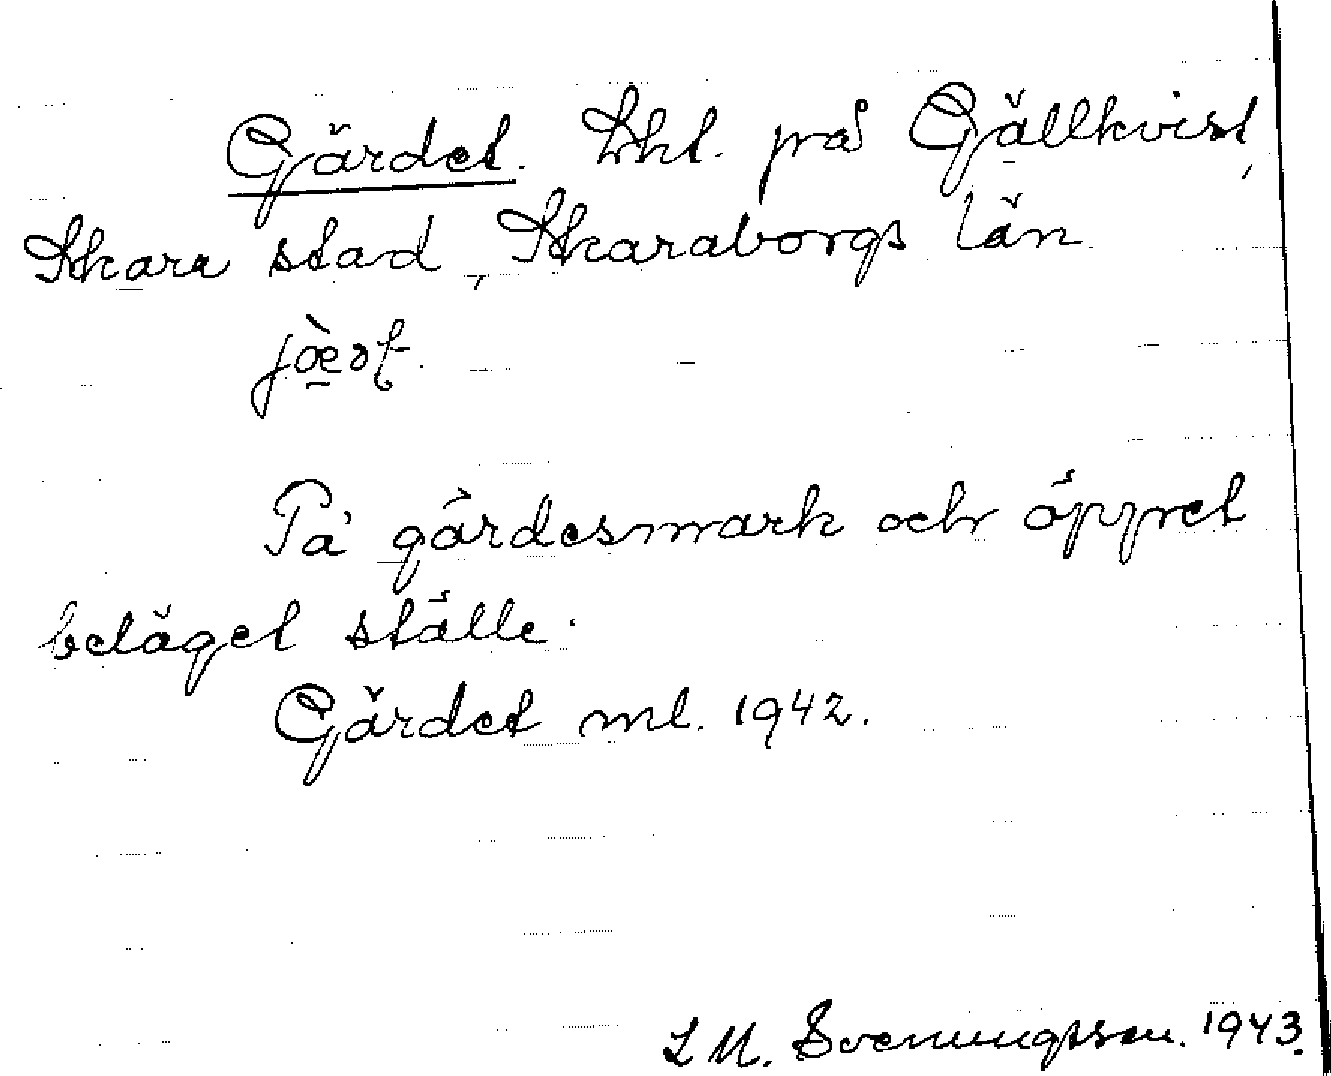 Gärdet. Lht. på Gällkvist,
Skara stad, Skaraborgs län.
jæ̀ꝛt.
På gärdesmark och öppret
beläget ställe.
Gärdet ml. 1942.
L M. Svenungsson. 1943.